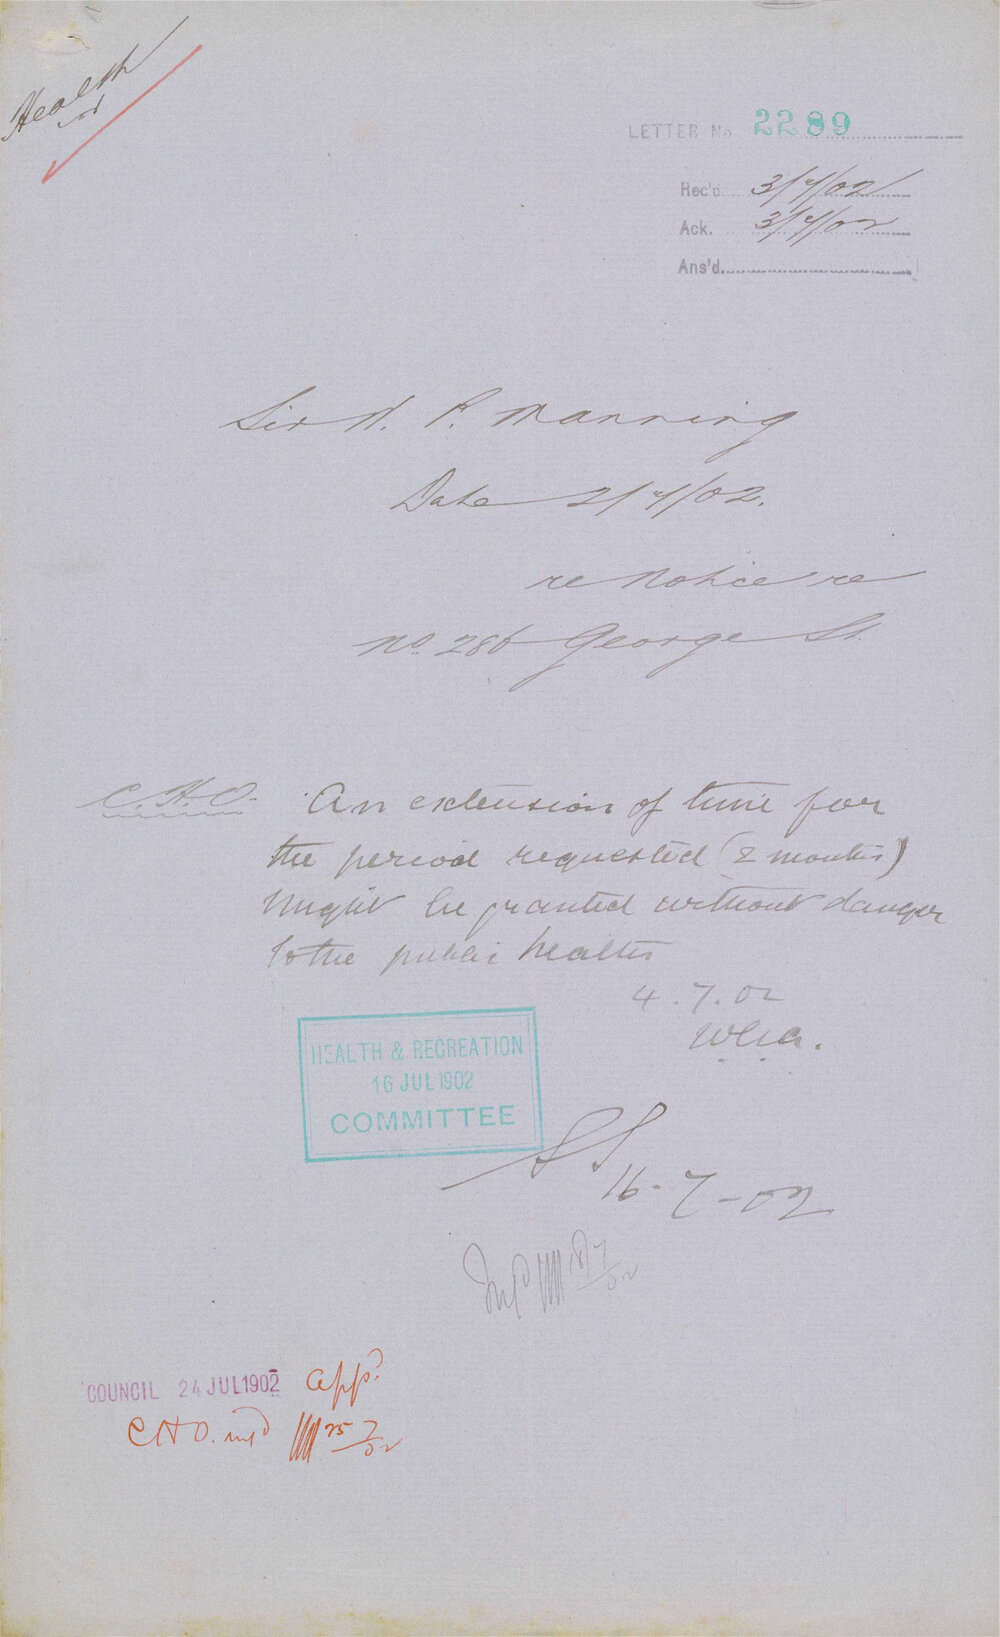 Health
LETTER No. 2289
Rec'd 3/7/02
Ack. 3/7/02
Ans'd
Sir W. P. Manning
Date 2/7/02.
re notice re
No. 286 George St.
C.H.O. An extension of time for
the period requested (2 months)
might be granted without danger
to the public health
4.7.02
HEALTH & RECREATION
16 JUL 1902
COMMITTEE
16-7-02
COUNCIL 24 JUL 1902 appd.
C H O. infd 25/7/02